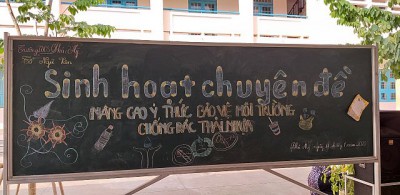 Trường THCS Phú Mỹ
Tổ Ngữ Văn
Sinh hoạt chuyên đề
NÂNG CAO Ý THỨC BẢO VỆ MÔI TRƯỜNG
CHỐNG RÁC THẢI NHỰA
Phú Mỹ, ngày